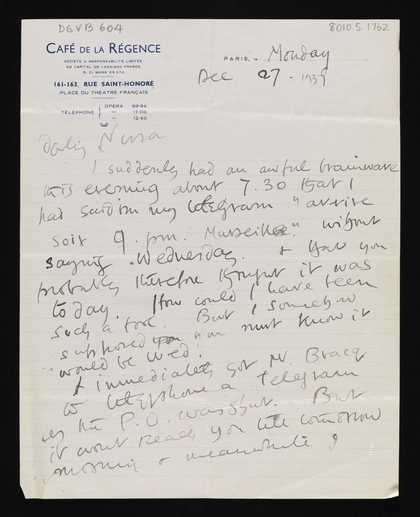 DGVB 604
8010.5.1762
CAFÉ DE LA RÉGENCE
SOCIÉTÉ A RESPONSABILITÉ LIMITÉE
AU CAPITAL DE FRANCS
161-163, RUE SAINT-HONORÉ
PLACE DU THÉATRE FRANÇAIS
TÉLÉPHONE OPÉRA
PARIS, Monday
Dec 27. 1937
I suddenly had an awful brainwave
this evening about 7.30 that I
had said in my telegram "arrive
soir 9. pm. Marseille." without
saying Wednesday. & that you
probably therefore thought it was
today. How could I have been
such a fool. But I somehow
supposed you must know it
would be Wed!
I immediately got M. Bracq
to telephone a telegram
as the P.O. was shut. But
it won't reach you till tomorrow
morning & meanwhile I